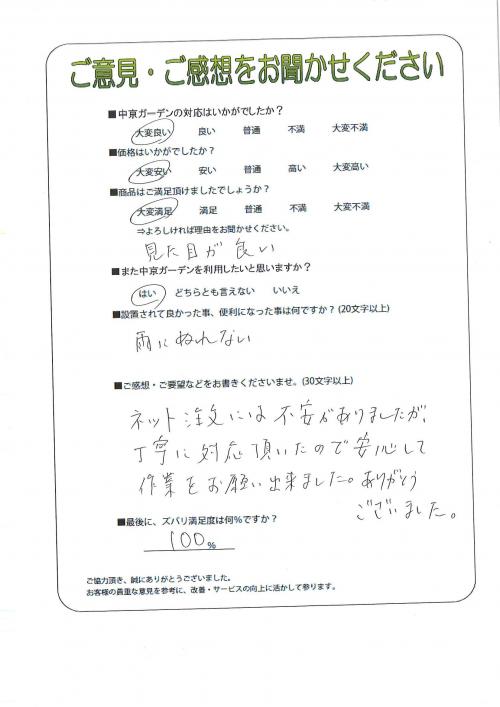 ご意見・ご感想をお聞かせください
■中京ガーデンの対応はいかがでしたか？
大変良い 良い 普通 不満 大変不満
■価格はいかがでしたか？
大変安い 安い 普通 高い 大変高い
■商品はご満足頂けましたでしょうか？
大変満足 満足 普通 不満 大変不満
⇒よろしければ理由をお聞かせください。
見た目が良い
■また中京ガーデンを利用したいと思いますか？
はい どちらとも言えない いいえ
■設置されて良かった事、便利になった事は何ですか？(20文字以上)
雨にぬれない
■ご感想・ご要望などをお書きくださいませ。(30文字以上)
ネット注文には不安がありましたが、
丁寧に対応頂いたので安心して
作業をお願い出来ました。ありがとう
ございました。
■最後に、ズバリ満足度は何%ですか？
100%
ご協力頂き、誠にありがとうございました。
お客様の貴重な意見を参考に、改善・サービスの向上に活かして参ります。